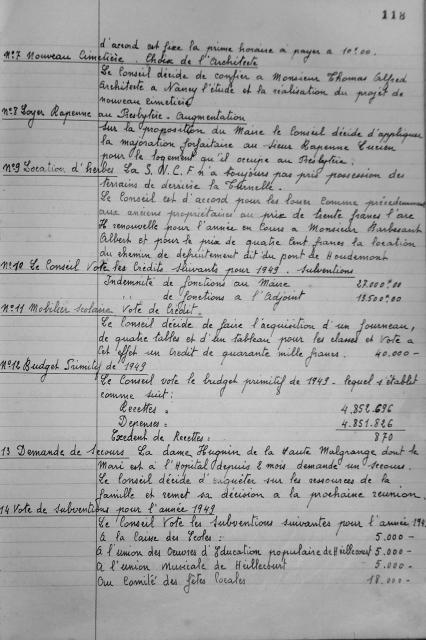 118
d'accord est fixe la prime horaire à payer à 10°00.
N°7 Nouveau Cimetière. Choix de l'Architecte
Le Conseil décide de confier à Monsieur Thomas Alfred
Architecte à Nancy l'étude et la réalisation du projet de
nouveau cimetière
N°8 Loyer Rapenne au Presbytère - augmentation
Sur la proposition du Maire le Conseil décide d'appliquer
la majoration forfaitaire au sieur Rapenne Lucien
pour le logement qu'il occupe au Presbytère.
N°9 Location d'herbes. La S.N.C.F. n'a toujours pas pris possession des
terrains de derrière la Turnelle.
Le Conseil est d'accord pour les louer comme précédemment
aux anciens propriétaires au prix de trente francs l'are
Il renouvelle pour l'année en cours à Monsieur
Albert et pour le prix de quatre cent francs la location
du chemin de defruitement dit du pont de Houdemont
N°10 Le Conseil Vote les Crédits suivants pour 1949. Subventions
Indemnité de fonctions au Maire 27.000°00
" de fonctions à l'Adjoint 13500°00
N°11 Mobilier scolaire Vote de Crédit.
Le Conseil décide de faire l'acquisition d'un fourneau,
de quatre tables et d'un tableau pour les classes et Vote à
cet effet un crédit de quarante mille francs. 40.000 -
N°12 Budget Primitif de 1949
Le Conseil vote le budget primitif de 1949 - lequel s'établit
comme suit:
Recettes = 4.852.696
Depenses = 4.851.826
Excédent de Recettes: 870
13 Demande de Secours La dame Huguin de la Haute Malgrange dont le
Mari est à l'Hopital depuis 2 mois demande un secours.
Le Conseil décide d'enquêter sur les ressources de la
famille et remet sa décision à la prochaine reunion.
14 Vote de subventions pour l'année 1949
Le Conseil Vote les subventions suivantes pour l'année 194
à la Caisse des Ecoles: 5.000 -
à l'union des Oeuvres d'Education populaire de Heillecourt 5.000 -
à l'union Musicale de Heillecourt 5.000 -
au Comité des fêtes locales 18.000 -